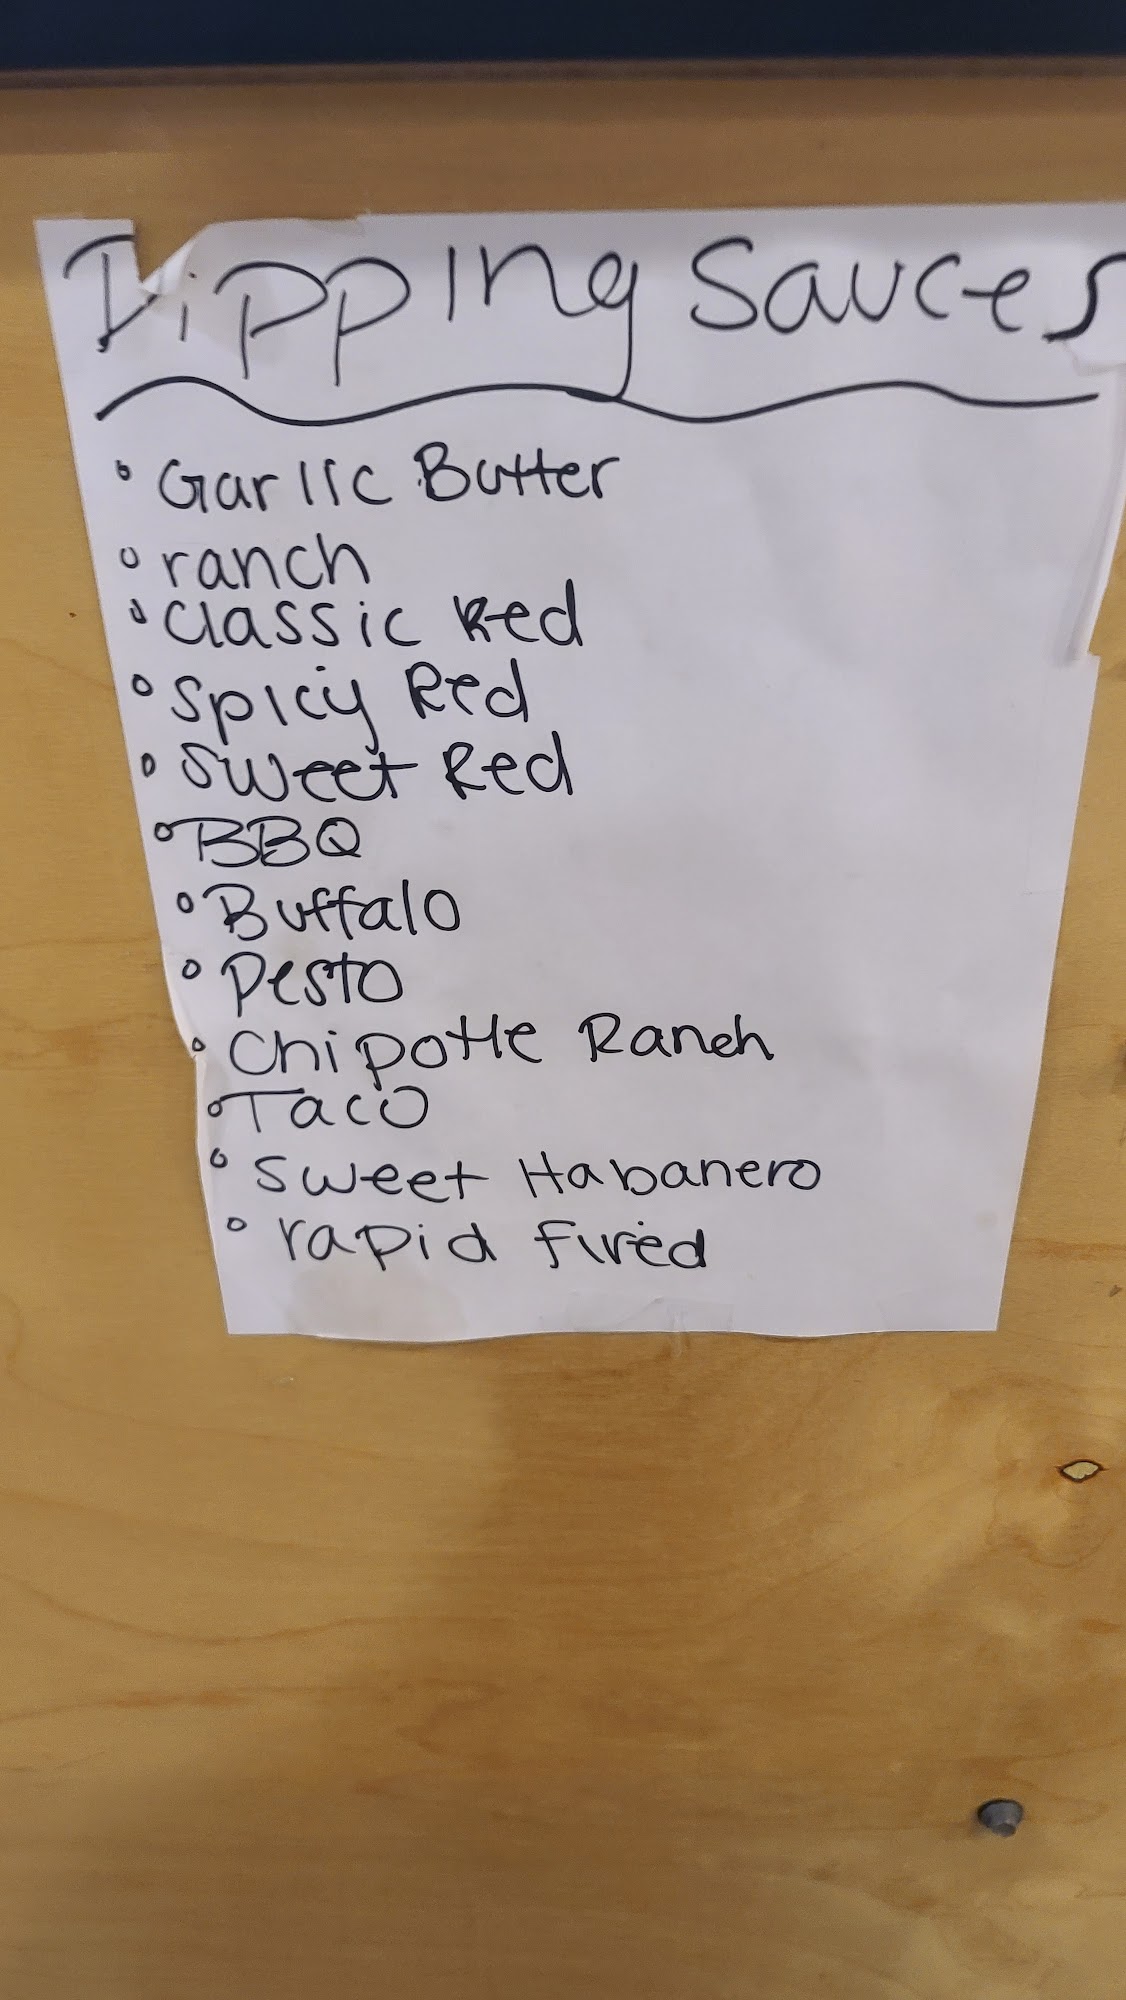 Dipping Sauces
° Garlic Butter
° ranch
° Classic Red
° Spicy Red
° Sweet Red
° BBQ
° Buffalo
° Pesto
° Chipotle Ranch
° Taco
° Sweet Habanero
° rapid fired